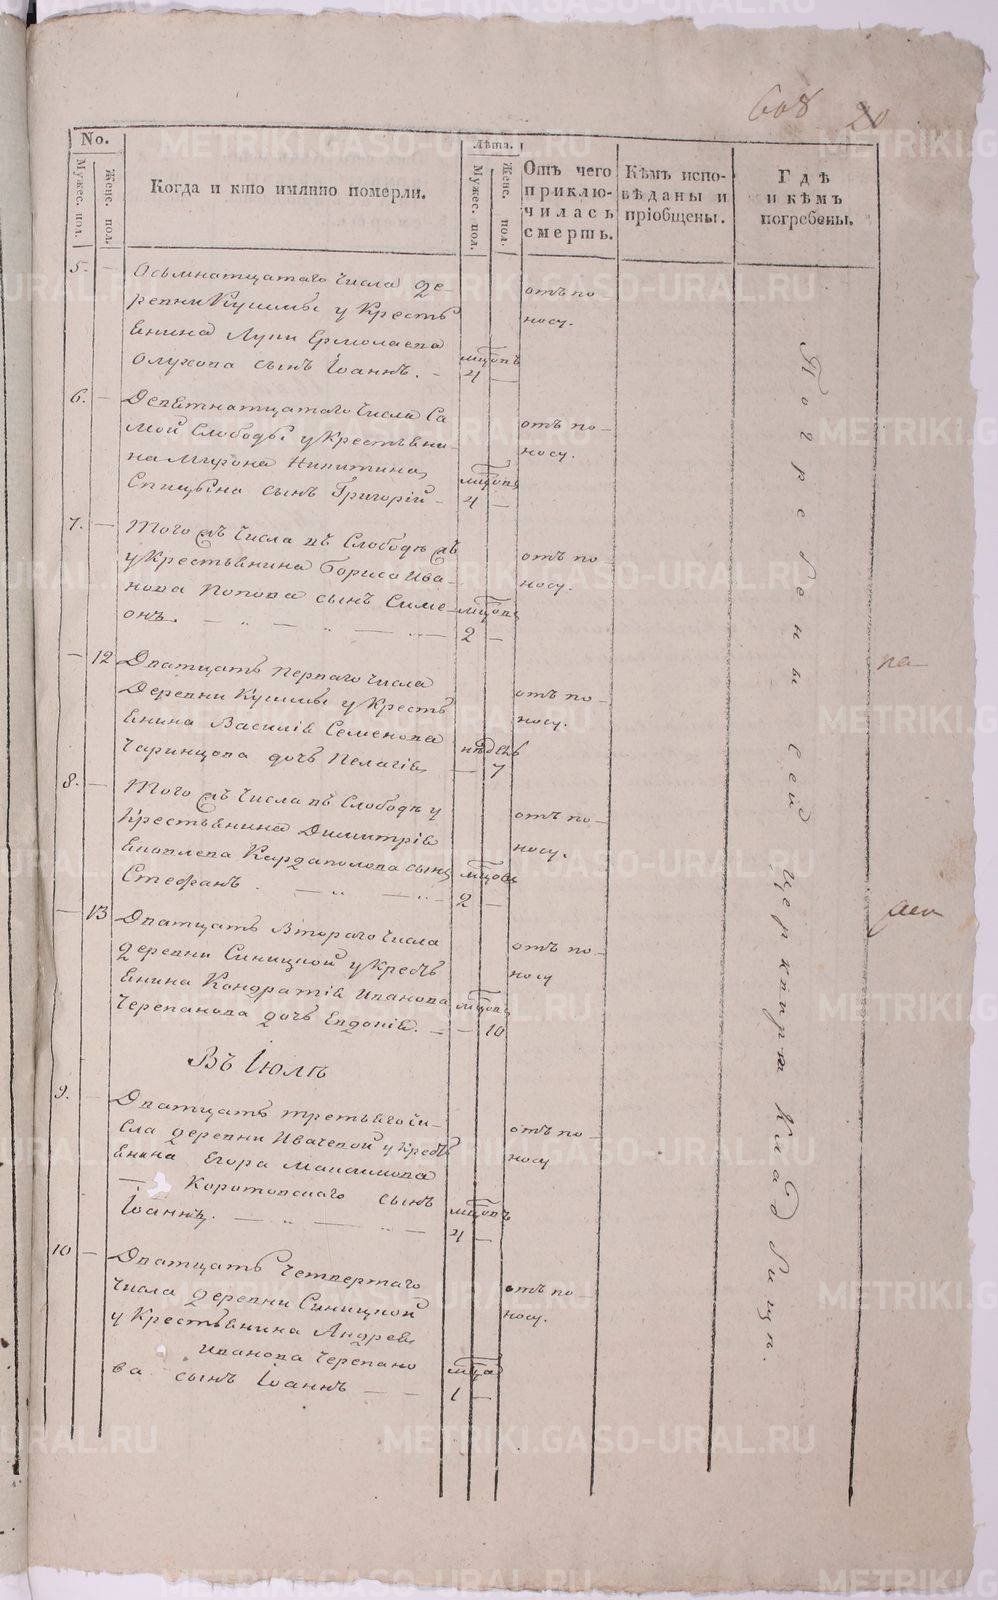 608 20
No.
Мужес. пол.
Женс. пол.
Когда и кто имянно померли.
Лѣта.
Мужес. пол.
Женс. пол.
Отъ чего
приклю-
чилась
смерть.
Кѣмъ испо-
вѣданы и
пріобщены.
Гдѣ
и кѣмъ
погребены.
5. — Осьмнатцатаго числа де-
ревни Кушмы у Кресть
янина Лупи Ермолаева
сынъ Іоаннъ. —
мцовъ
4 —
отъ по-
носу.
6. — Девятнатцатаго числа Са
мой Слободы у Крестьяни-
на Мирона Никитина
Спицына сынъ Григорій —
мцовъ
4 —
отъ по-
носу.
7. — Того жъ числа въ Слободѣ жъ
у Крестьянина Бориса Ива-
нова Попова сынъ Симе-
онъ.
мцовъ
2 —
отъ по
носу.
— 12 Дватцать перваго числа
Деревни Кушмы у Кресть
янина Василія Семенова
дочь Пелагія
недель
— 7
отъ по-
носу.
8. — Того жъ числа въ Слободѣ у
Крестьянина Димитрія
Кардаполова сынъ
Стефанъ.
мцовъ
2 —
отъ по-
носу.
— 13 Дватцать втораго числа
деревни Синицной у Кресть
янина Кондратія Иванова
Черепанова дочь Евдокія. —
мцовъ
— 10
отъ по-
носу
Въ Іюлѣ
9. — Дватцать третьяго чи-
сла деревни Ивачевой у Кресть
янина Егора Максимова
— Коротовскаго сынъ
Іоаннъ.
мцовъ
4 —
отъ по-
носу
10 — Дватцать четвертаго
числа деревни Синицной
у Крестьянина Андрея
Иванова Черепано
ва сынъ Іоаннъ — —
мца
1 —
отъ по-
носу.
Погребены сей церкви на кладбищѣ.
METRIKI.GASO-URAL.RU